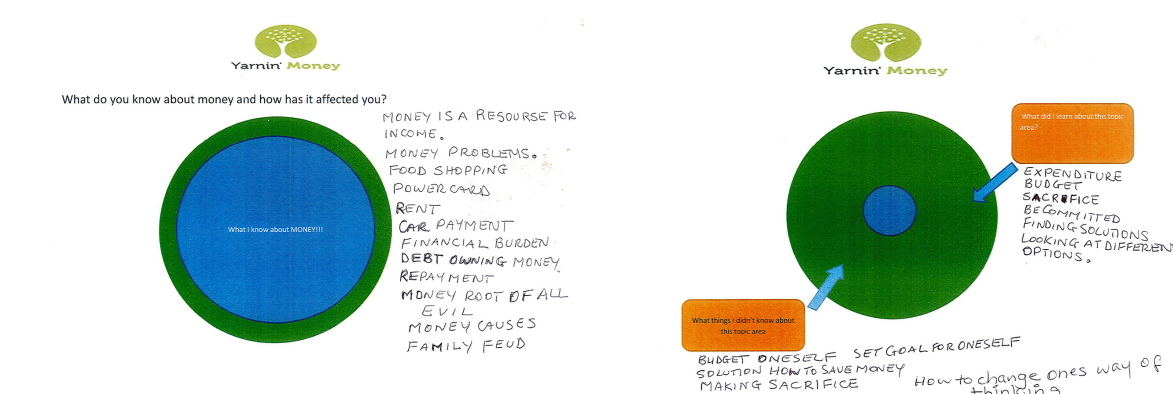 Yarnin' Money
What do you know about money and how has it affected you?
What I know about MONEY!!!
MONEY IS A RESOURSE FOR
INCOME.
MONEY PROBLEMS.
FOOD SHOPPING
POWERCARD
RENT
CAR PAYMENT
FINANCIAL BURDEN
DEBT OWNING MONEY
REPAYMENT
MONEY ROOT OF ALL
EVIL
MONEY CAUSES
FAMILY FEUD
Yarnin' Money
What did I learn about this topic
area?
EXPENDITURE
BUDGET
SACRIFICE
BE COMMITTED
FINDING SOLUTIONS
LOOKING AT DIFFEREN
OPTIONS.
What things I didn't know about
this topic area
BUDGET ONESELF SET GOAL FOR ONESELF
SOLUTION HOW TO SAVE MONEY
MAKING SACRIFICE
How to change ones way of
thinking